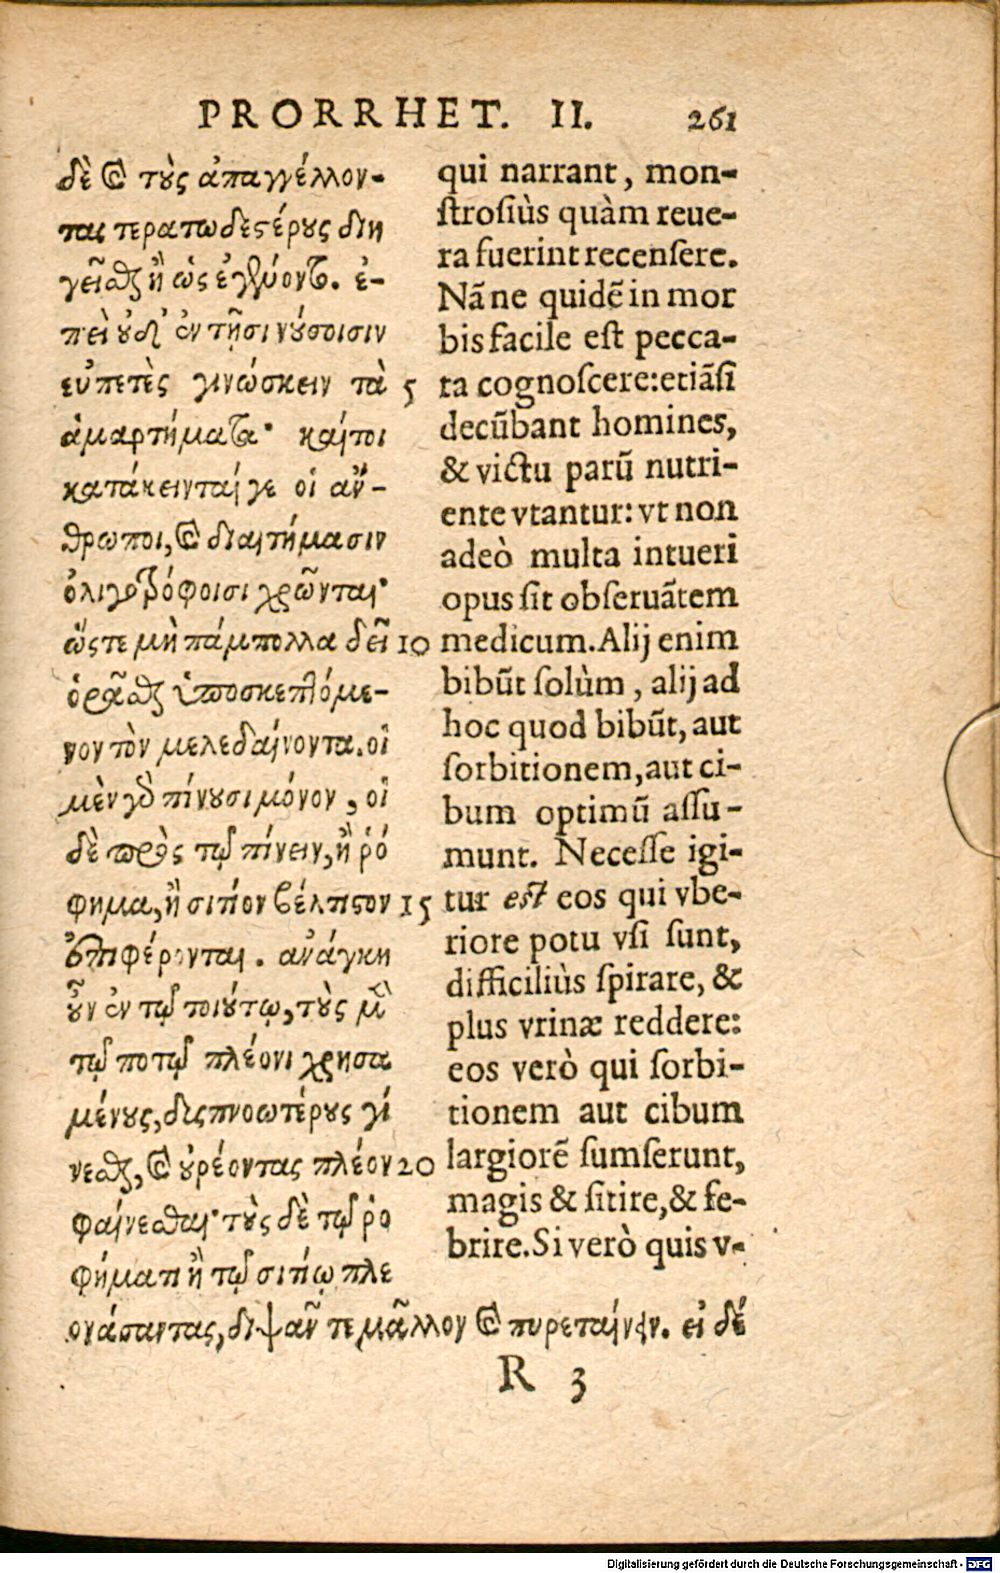 PRORRHET. II. 261
δὲ καὶ τοὺς ἀπαγγέλλον-
τας τερατωδεστέρους διη
γεῖσθαι ἢ ὡς ἐγένοντο. ἐ-
πεὶ οὐδ' ἐν τῇσι νούσοισιν
εὐπετὲς γινώσκειν τὰ 5
ἁμαρτήματα· καίτοι
κατάκεινταί γε οἱ ἄν-
θρωποι, καὶ διαιτήμασιν
ὀλιγοτρόφοισι χρῶνται·
ὥστε μὴ πάμπολλα δεῖ 10
ὁρᾶσθαι ὑποσκεπτόμε-
νον τὸν μελεδαίνοντα. οἱ
μὲν γὸ πίνουσι μόνον, οἱ
δὲ πρὸς τῷ πίνειν, ἢ ῥό
φημα, ἢ σιτίον βέλτιστον 15
ἐπιφέρονται. ἀνάγκη
οὖν ἐν τῷ τοιούτῳ, τοὺς μὲν
τῷ ποτῷ πλέονι χρησα
μένους, δυςπνοωτέρους γί
νεσθαι, καὶ οὐρέοντας πλέον 20
φαίνεσθαι· τοὺς δὲ τῷ ῥο
φήματι ἢ τῷ σιτίῳ πλε
ονάσαντας, διψᾶν τε μᾶλλον καὶ πυρεταίνειν. εἰ δέ
qui narrant, mon-
strosiùs quàm reue-
ra fuerint recensere.
Nã ne quidẽ in mor
bis facile est pecca-
ta cognoscere: etiãsi
decũbant homines,
& victu parũ nutri-
ente vtantur: vt non
adeò multa intueri
opus sit obseruãtem
medicum. Alij enim
bibũt solùm, alij ad
hoc quod bibũt, aut
sorbitionem, aut ci-
bum optimũ assu-
munt. Necesse igi-
tur est eos qui vbe-
riore potu vsi sunt,
difficiliùs spirare, &
plus vrinæ reddere:
eos verò qui sorbi-
tionem aut cibum
largiorẽ sumserunt,
magis & sitire, & fe-
brire. Si verò quis v-
R 3
Digitalisierung gefördert durch die Deutsche Forschungsgemeinschaft - DFG